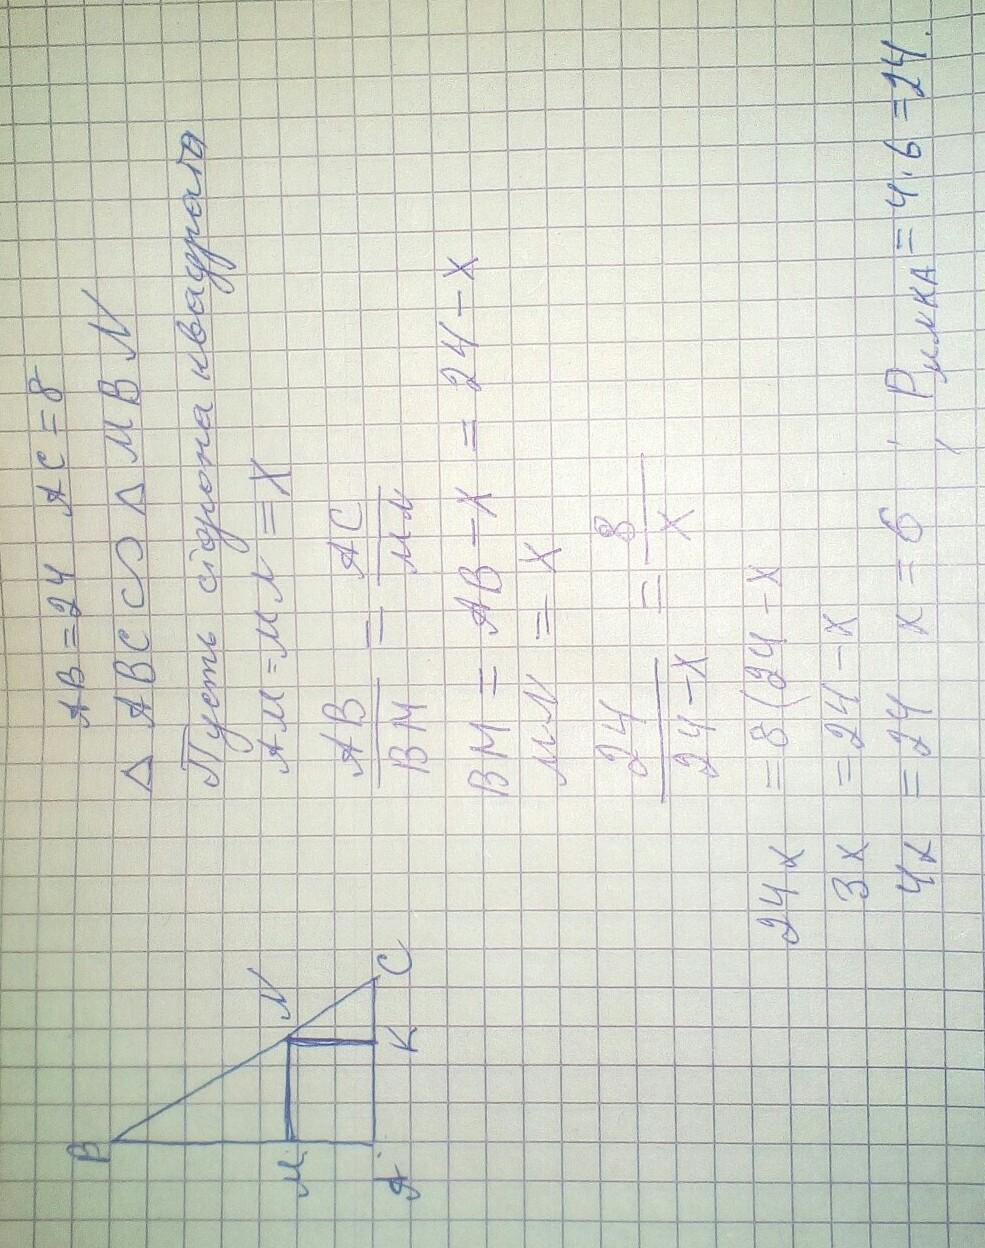 AB = 24 AC = 8
△ ABC ∽ △ MBN
Пусть сторона квадрата
AM = MN = X
AB/BM = AC/MN
BM = AB - X = 24 - X
MN = X
24/24-X = 8/X
24x = 8(24-X
3x = 24-X
4x = 24 x = 6 ; P MNKA = 4·6=24.
B
M
A
N
K
C